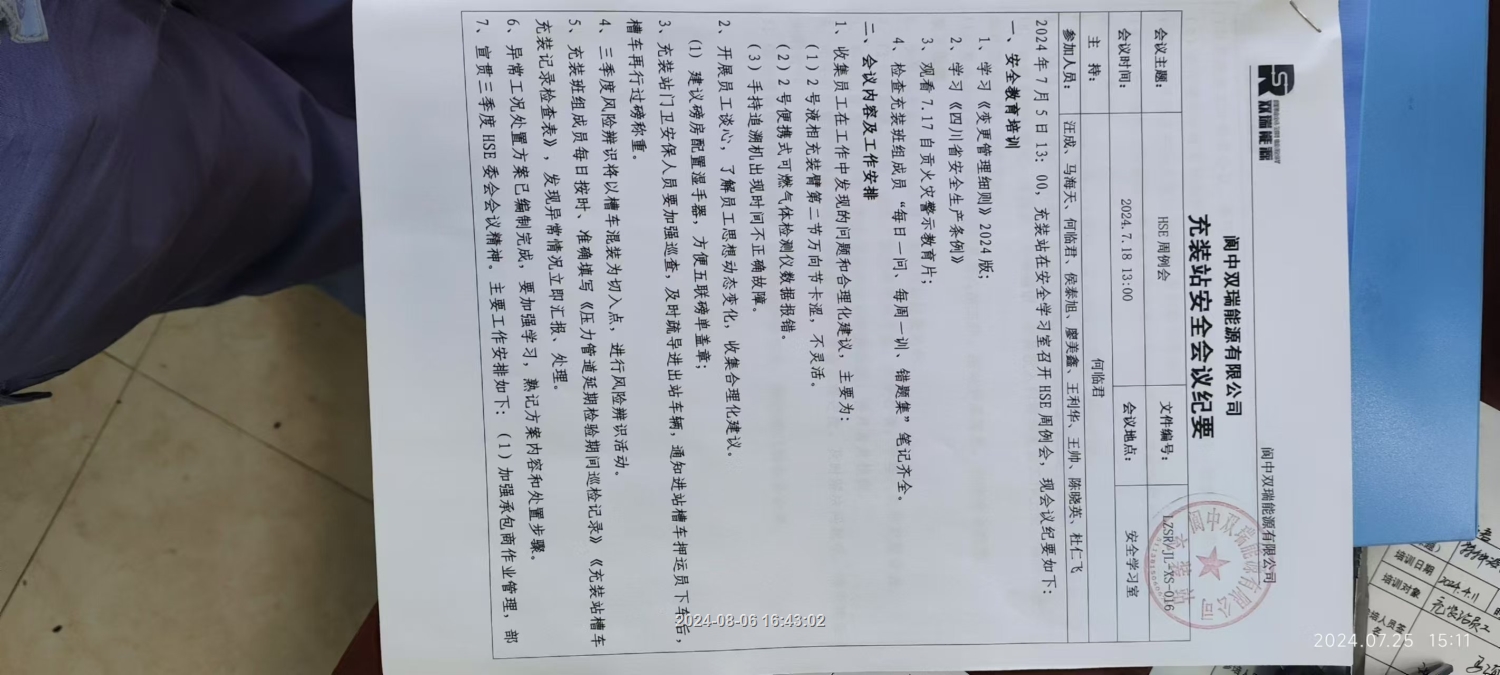 双瑞能源
阆中双瑞能源有限公司
阆中双瑞能源有限公司
充装站安全会议纪要
会议主题： HSE 周例会 文件编号： LZSR/JL-XS-016
会议时间： 2024.7.18 13:00 会议地点： 安全学习室
主 持： 何临君
参加人员： 汪成、马海天、何临君、侯泰旭、廖美鑫、王利华、王帅、陈晓英、杜仁飞
2024 年 7 月 5 日 13：00，充装站在安全学习室召开 HSE 周例会，现会议纪要如下：
一、安全教育培训
1、学习《变更管理细则》2024 版；
2、学习《四川省安全生产条例》
3、观看 7.17 自贡火灾警示教育片；
4、检查充装班组成员“每日一问、每周一训、错题集”笔记齐全。
二、会议内容及工作安排
1、收集员工在工作中发现的问题和合理化建议，主要为：
（1）2 号液相充装臂第二节万向节卡涩，不灵活。
（2）2 号便携式可燃气体检测仪数据报错。
（3）手持追溯机出现时间不正确故障。
2、开展员工谈心，了解员工思想动态变化，收集合理化建议。
（1）建议磅房配置湿手器，方便五联磅单盖章；
3、充装站门卫安保人员要加强巡查，及时疏导进出站车辆，通知进站槽车押运员下车后，
槽车再行过磅称重。
4、三季度风险辨识将以槽车混装为切入点，进行风险辨识活动。
5、充装班组成员每日按时、准确填写《压力管道延期检验期间巡检记录》《充装站槽车
充装记录检查表》，发现异常情况立即汇报、处理。
6、异常工况处置方案已编制完成，要加强学习，熟记方案内容和处置步骤。
7、宣贯三季度 HSE 委会会议精神。主要工作安排如下：（1）加强承包商作业管理，部
阆中双瑞能源有限公司
充装站
培训日期 2024.4.11
培训对象
2024-08-06 16:43:02
2024.07.25 15:11